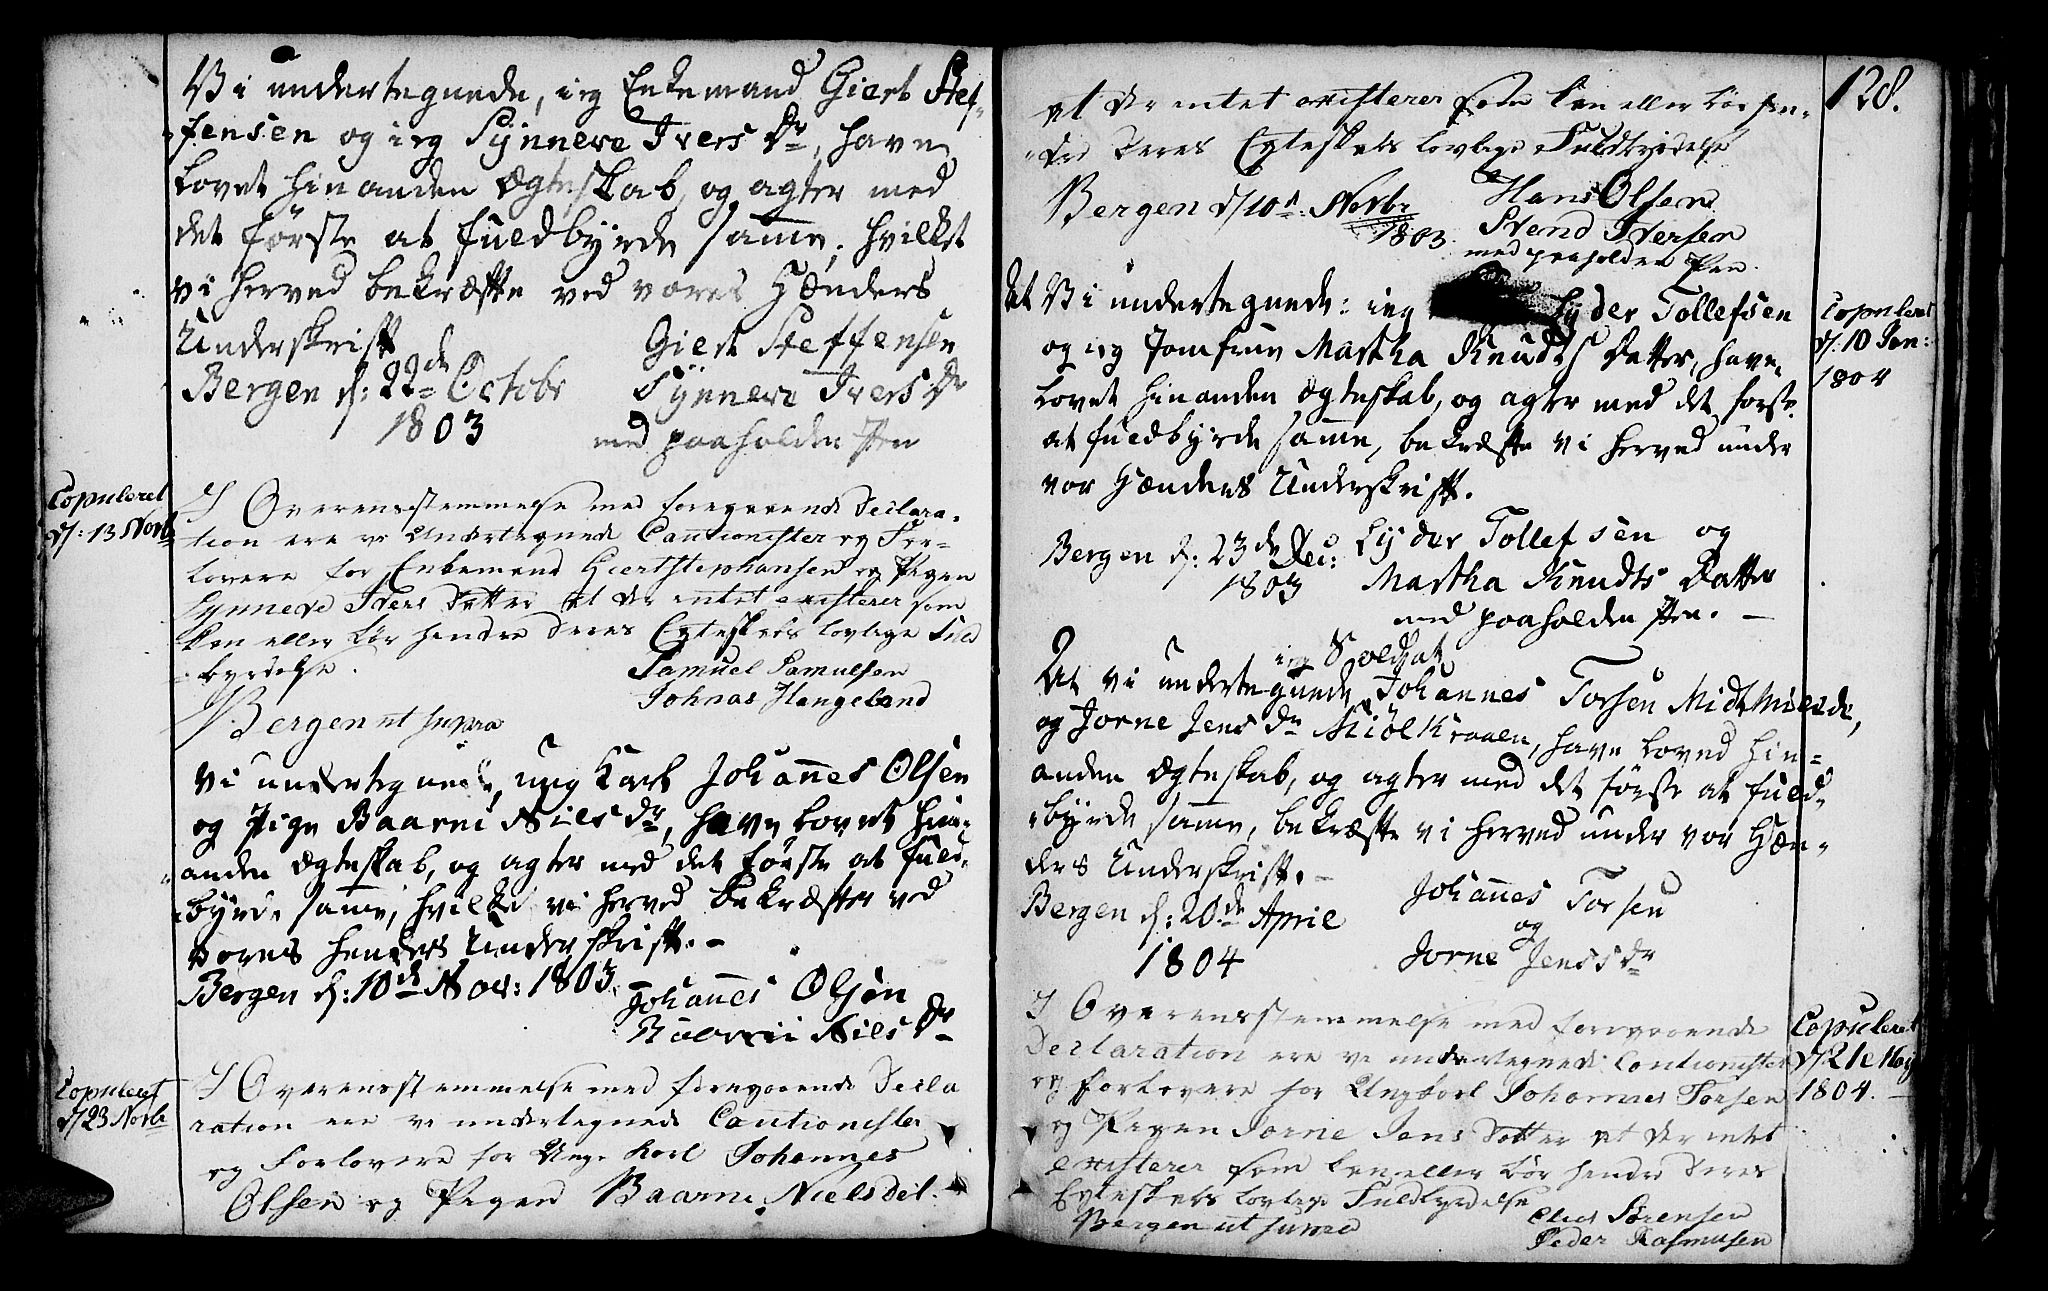 Vi undertegnede, ieg Enkemand Giert Stef-
fensen og ieg Synneve Ivers Dr, have
lovet hinanden Ægteskab, og agter med
det første at fuldbyrde samme, hvilket
vi herved bekræfte ved vores Hænders
Underskrift
Giert Steffensen
Bergen d: 22de Octobr
1803
Synneve Ivers Dr
med paaholden Pen
Copuleret
d/: 13 Novb
I Overensstemmelse med foregaaende Declara-
tion ere vi Undertegnede Cautionister og For-
lovere for Enkemand Giert Stephansen og Pigen
Synneve Ivers Datter at der intet existerer som
kan eller bør hendre deres Egteskabs lovlige Fuld
byrdelse.
Samuel Samuelsen
Johnas Hangeland
Bergen ut supra
Vi undertegnede, ung Karl Johannes Olsen
og Pige Baarni Niels Dr, have lovet hin-
anden Ægteskab, og agter med det første at fuld-
byrde samme, hvilke vi herved bekræfter ved
vores henders Underskrift.
Bergen d: 10de Nov: 1803
Johannes Olsen
Baarni Niels Dr
Copuleret
d/23 Novbr
I Overensstemmelse med foregaaende Decla
ration ere vi undertegnede Cautionister
og Forlovere for Unge Karl Johannes
Olsen og Pigen Baarne Nielsdat.
128.
at der intet existerer som kan eller bør hen-
dre deres Egteskabs lovlige Fuldbyrdelse
Bergen d/10de Novbr
1803
Hans Olsen
Svend Iversen
med paaholden Pen.
At Vi undertegnede: ieg Lyder Tollefsen
og ieg Jomfrue Martha Knudts Datter, have
lovet hinanden Ægteskab, og agter med det første
at fuldbyrde samme, bekræfte vi herved under
vor Hænders Underskrift.
Copuleret
d/: 10 Jan:
1804
Bergen d: 23de Dec:
1803
Lyder Tollefsen og
Martha Knudts Datter
med paaholden Pen.
ieg Soldat
At vi undertegnede, Johannes Torsen Midtmielde,
og Jorne Jens Dr Kraaen, have loved hin-
anden Ægteskab, og agter med det første at fuld-
byrde samme, bekræfte vi herved under vor Hæn-
ders Underskrift.
Bergen d: 20de April
1804
Johannes Torsen
og
Jorne Jens Dr
I Overensstemmelse med foregaaende
Declaration ere vi undertegnede Cautionister
og Forlovere for Ungkarl Johannes Torsen
og Pigen Jorne Jens Datter at der intet
existerer som kan eller bør hendre deres
Egteskabs lovlige Fuldbyrdelse
Bergen ut supra
Sørensen
Peder Rasmusen
Copuleret
d/21e May
1804.